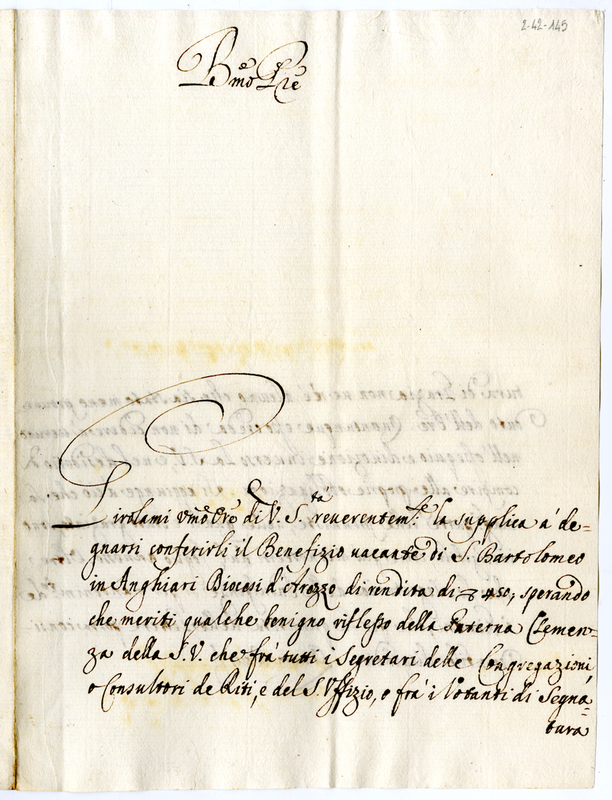 2-42-145
Bmo Pre
Girolami Vmo Ore di V. S.tà reverentem.te la supplica a' de=
gnarsi conferirli il Benefizio vacante di S. Bartolomeo
in Anghiari Diocesi d'Arezzo di rendita di 450; sperando
che meriti qualche benigno riflesso della Paterna Clemen=
za della S. V. che frà tutti i Segretari delle Congregazioni,
o Consultori de Riti, e del S. Uffizio, o frà i Votanti di Segna=
tura